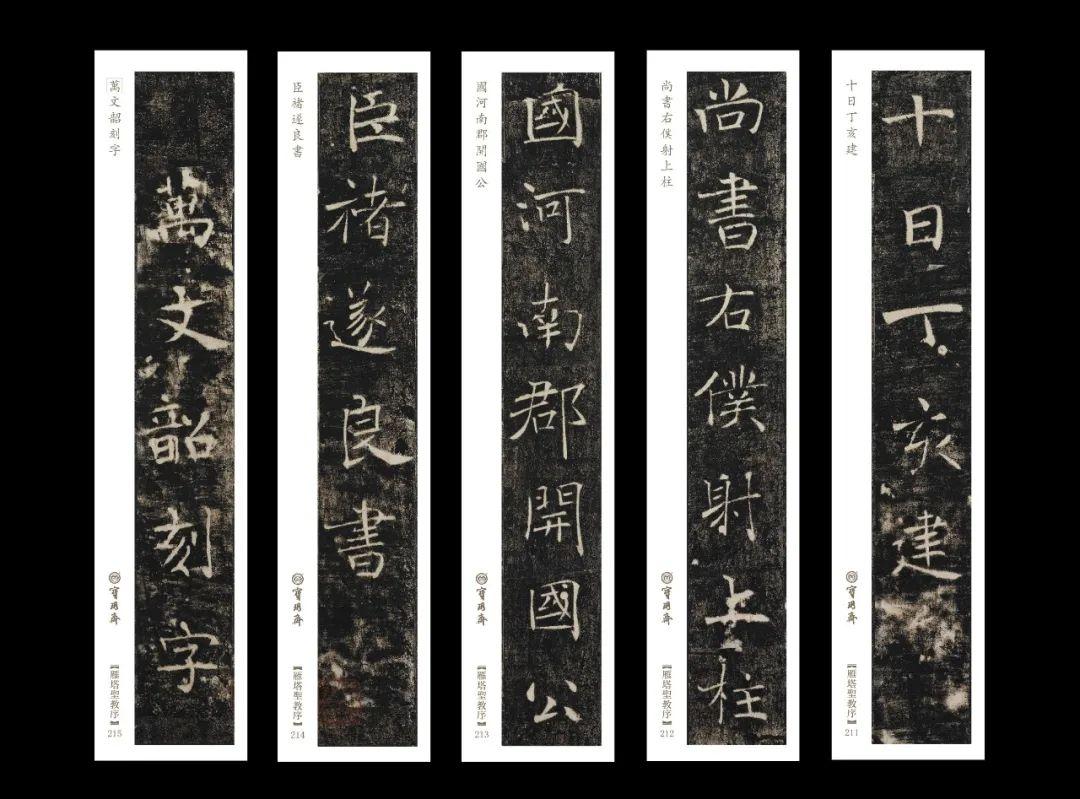 十日丁亥建
十日丁亥建
寶玥齋
【雁塔聖教序】
211
尚書右僕射上柱
尚書右僕射上柱
寶玥齋
【雁塔聖教序】
212
國河南郡開國公
國河南郡開國公
寶玥齋
【雁塔聖教序】
213
臣褚遂良書
臣褚遂良書
寶玥齋
【雁塔聖教序】
214
萬文韶刻字
萬文韶刻字
寶玥齋
【雁塔聖教序】
215